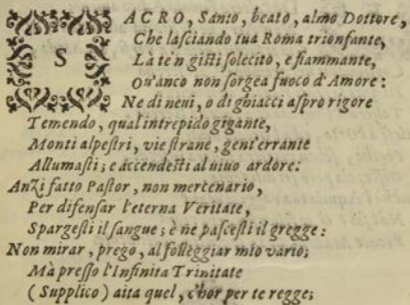 SACRO, Santo, beato, almo Dottore,
Che laſciando tua Roma trionfante,
Là te'n giſti ſolecito, e fiammante,
Ou'anco non ſorgea fuoco d'Amore:
Ne di neui, o di ghiacci aſpro rigore
Temendo, qual intrepido gigante,
Monti alpeſtri, vie ſtrane, gent'errante
Allumaſti; e accendeſti al uiuo ardore:
Anzi fatto Paſtor, non mercenario,
Per difenſar l'eterna Veritate,
Spargeſti il ſangue; è ne paſceſti il gregge:
Non mirar, prego, al folleggiar mio vario;
Mà preſſo l'Infinita Trinitate
(Supplico) aita quel, c'hor per te regge;